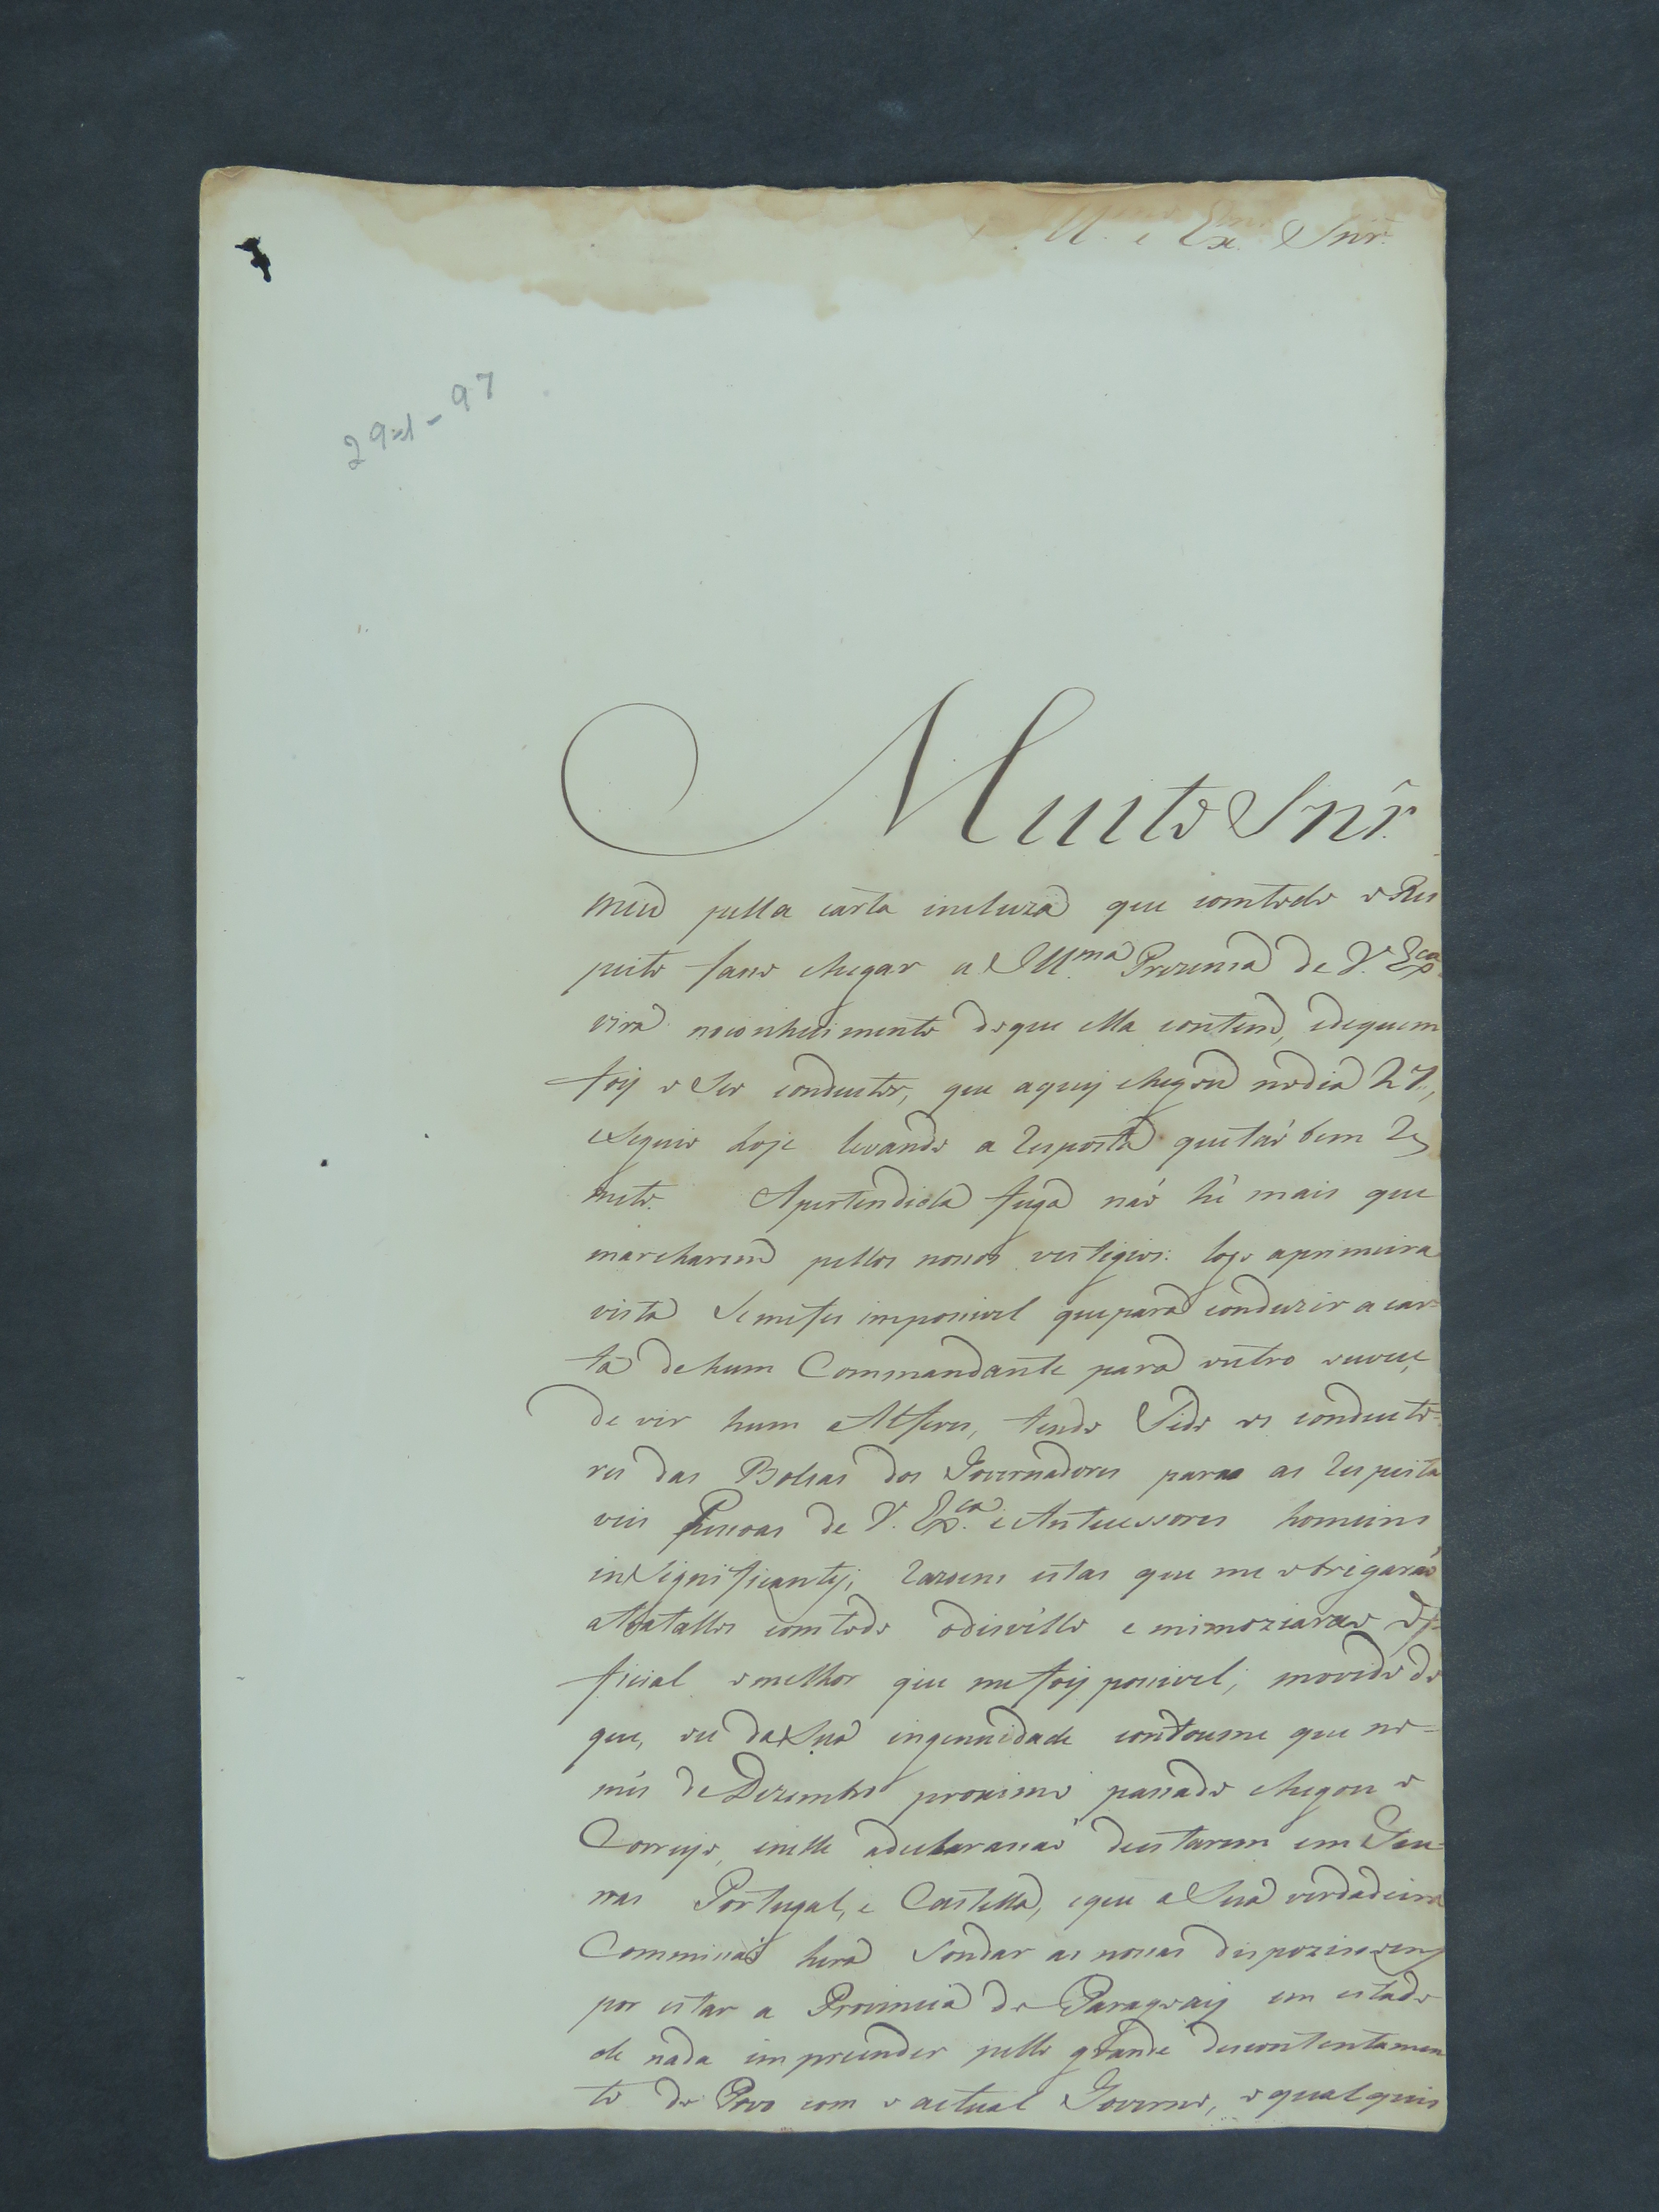 Ill.mo e Ex.mo Snr.
97
Muito Snr.
meu pella carta incluza que comtodo o Res
peito faso chegar a Ill.ma Prezensa de V. Ex.ca
virá noconhecimento doque ella contem, edequem
foy o Seo conductor, que aquy chegou nodia 27,
eseguio hoje levando a resposta quetaõ bem re
meto. Apertendida fuga naõ hé mais que
marcharem pellos nosos vestigios: logo aprimeira
vista Semefes imposivel quepara conduzir a car-
ta dehum Commandante para outro ouvese
de vir hum Alferes, tendo Sido os conducto-
res das Bolsas dos Governadores para as respeita
veis Pessoas de V. Ex.ca e Antecessores homeins
inSignificantes; razoens estas que me obrigaraõ
atratallos comtodo odisvéllo e mimoziarao of-
ficial omelhor que mefoy posivel; movido do
que, ou daSua ingenuidade contoume que no-
més deDezembro proximo pasado chegou o
Correyo, enelle adeclarasaõ deestarem em Guer-
ras Portugal, e Castella, eque aSua verdadeira
Commisaõ hera Sondar as nosas dispozisoens
por estar a Provincia do Paraguay em estado
de nada impreender pello grande descontentamen
to do Povo com o actual Governo, oqual quis